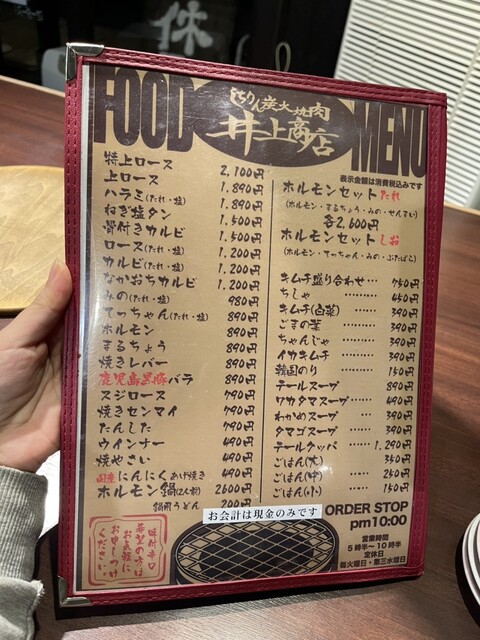 休
FOOD MENU
とちりん炭火焼肉
井上商店
表示金額は消費税込みです
特上ロース 2,100円
上ロース 1.890円
ハラミ(たれ・塩) 1.890円
ねぎ塩タン 1.500円
骨付きカルビ 1.500円
ロース(たれ・塩) 1.200円
カルビ(たれ・塩) 1.200円
なかおちカルビ 1.200円
みの(たれ・塩) 980円
てっちゃん(たれ・塩) 890円
ホルモン 890円
まるちょう 890円
焼きレバー 890円
鹿児島黒豚バラ 890円
スジロース 790円
焼きセンマイ 790円
たんした 790円
ウインナー 490円
焼やさい 490円
国産にんにくあげ焼き 490円
ホルモン鍋(2人前) 2600円
鍋用うどん 200円
ホルモンセット たれ
(ホルモン・まるちょう・みの・せんまい)
各2,600円
ホルモンセット しお
(ホルモン・てっちゃん・みの・ぶたばら)
キムチ盛り合わせ… 750円
ちしゃ ……… 450円
キムチ(白菜) …… 390円
ごまの葉 ……… 390円
ちゃんじゃ ……… 390円
イカキムチ ……… 390円
韓国のり ……… 150円
テールスープ …… 890円
ワカタマスープ…… 490円
わかめスープ …… 390円
タマゴスープ …… 390円
テールクッパ …… 1,290円
ごはん(大) …… 350円
ごはん(中) …… 250円
ごはん(小) …… 150円
お会計は現金のみです
ORDER STOP
pm10:00
営業時間
5時半～10時半
定休日
毎火曜日・第三水曜日
味付辛口
希望の方は
お気軽に
お申しつけ
ください。